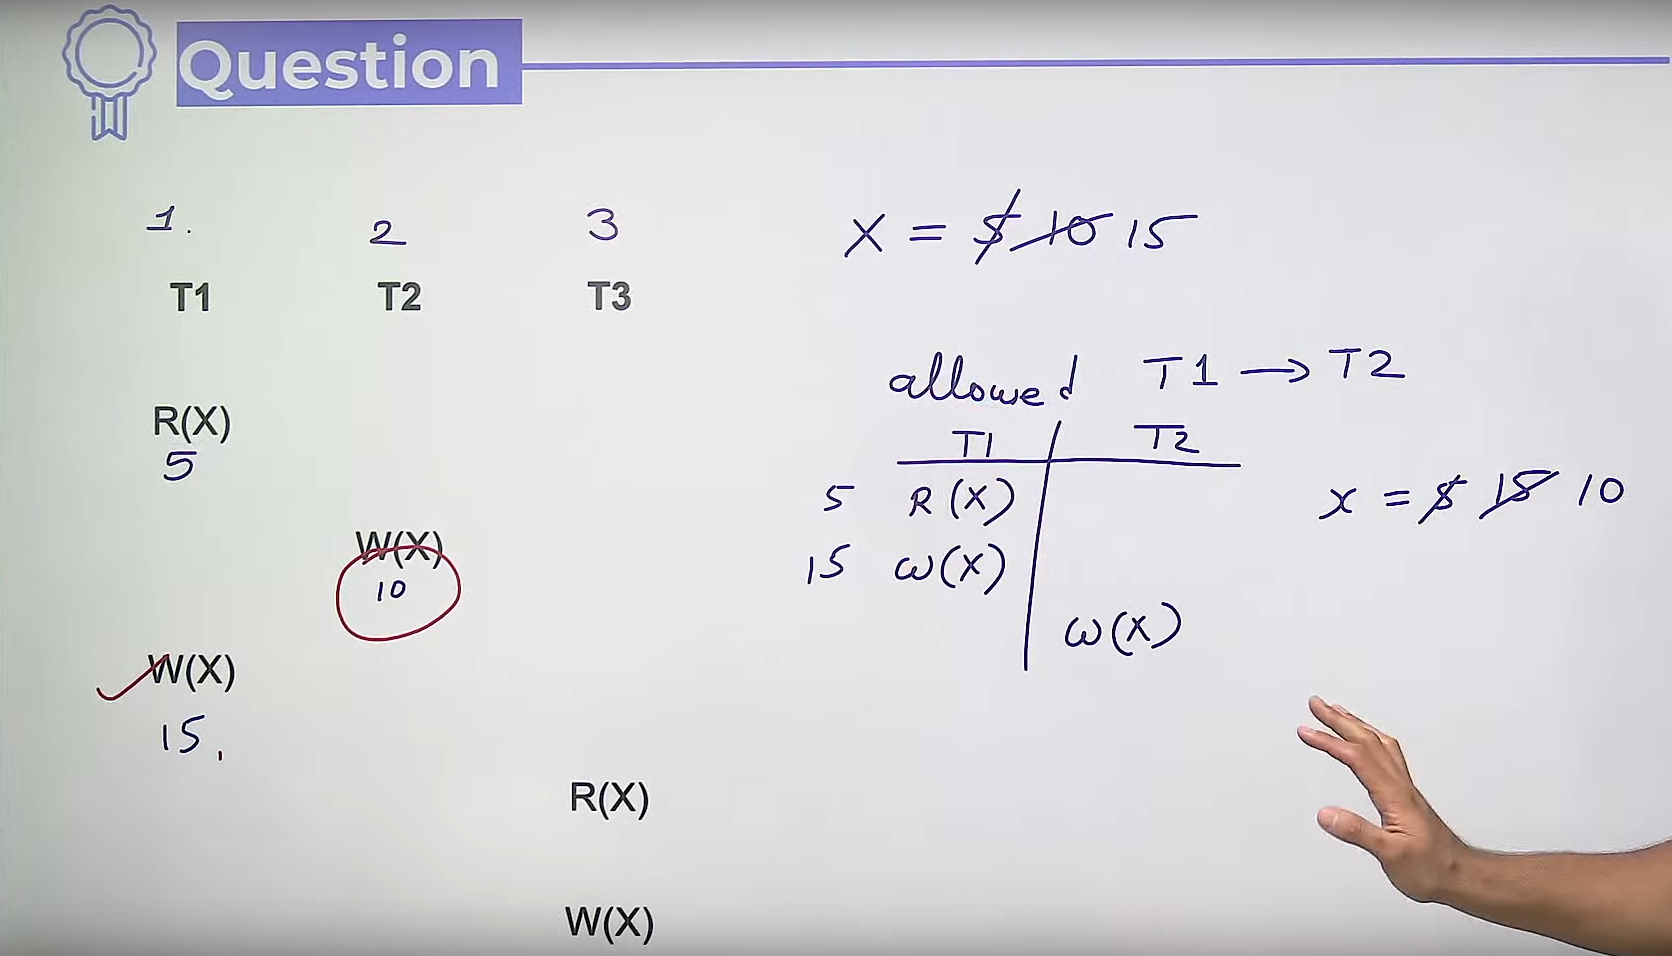 Question
1. 2 3
T1 T2 T3
R(X)
5
W(X)
10
W(X)
15.
R(X)
W(X)
X = 5 10 15
allowed T1 → T2
T1 T2
5 R(X)
15 W(X)
W(X)
x = 5 15 10